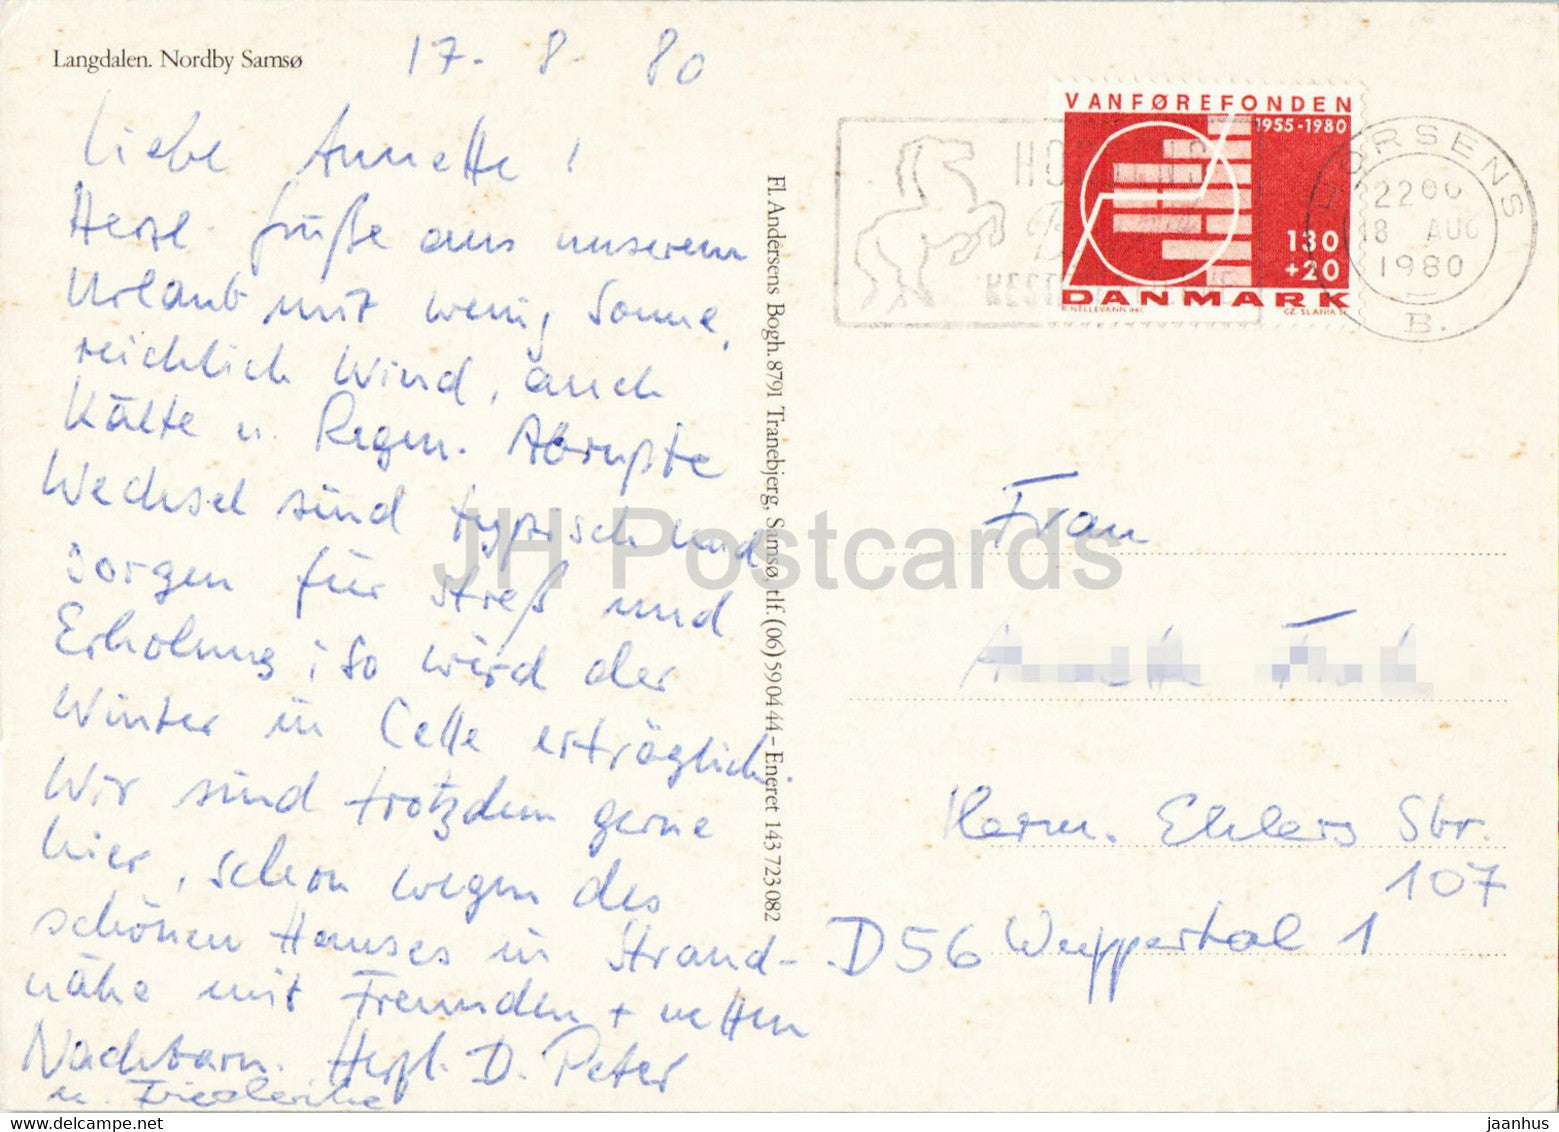 Langdalen. Nordby Samsø
17. 8. 80
Liebe Annette!
Herzl. Grüße aus unserem
Urlaub mit wenig Sonne,
reichlich Wind, auch
Kälte u. Regen. Abrupte
Wechsel sind typisch und
sorgen für Streß und
Erholung; so wird der
Winter in Celle erträglich.
Wir sind trotzdem gerne
hier, schon wegen des
schönen Hauses in Strand-
nähe mit Freunden + netten
Nachbarn. Herzl. D. Peter
u. Friederike
Fl. Andersens Bogh. 8791 Tranebjerg, Samsø, tlf. (06) 59 04 44 - Eneret 143 723 082
VANFØREFONDEN
1955-1980
130
+20
DANMARK
CZ. SLANIA
HORSENS
HORSENS
22 00
18 AUG
1980
B.
Frau
Herm. Ehlers Str.
107
D 56 Wuppertal 1
JH Postcards
jaanhus